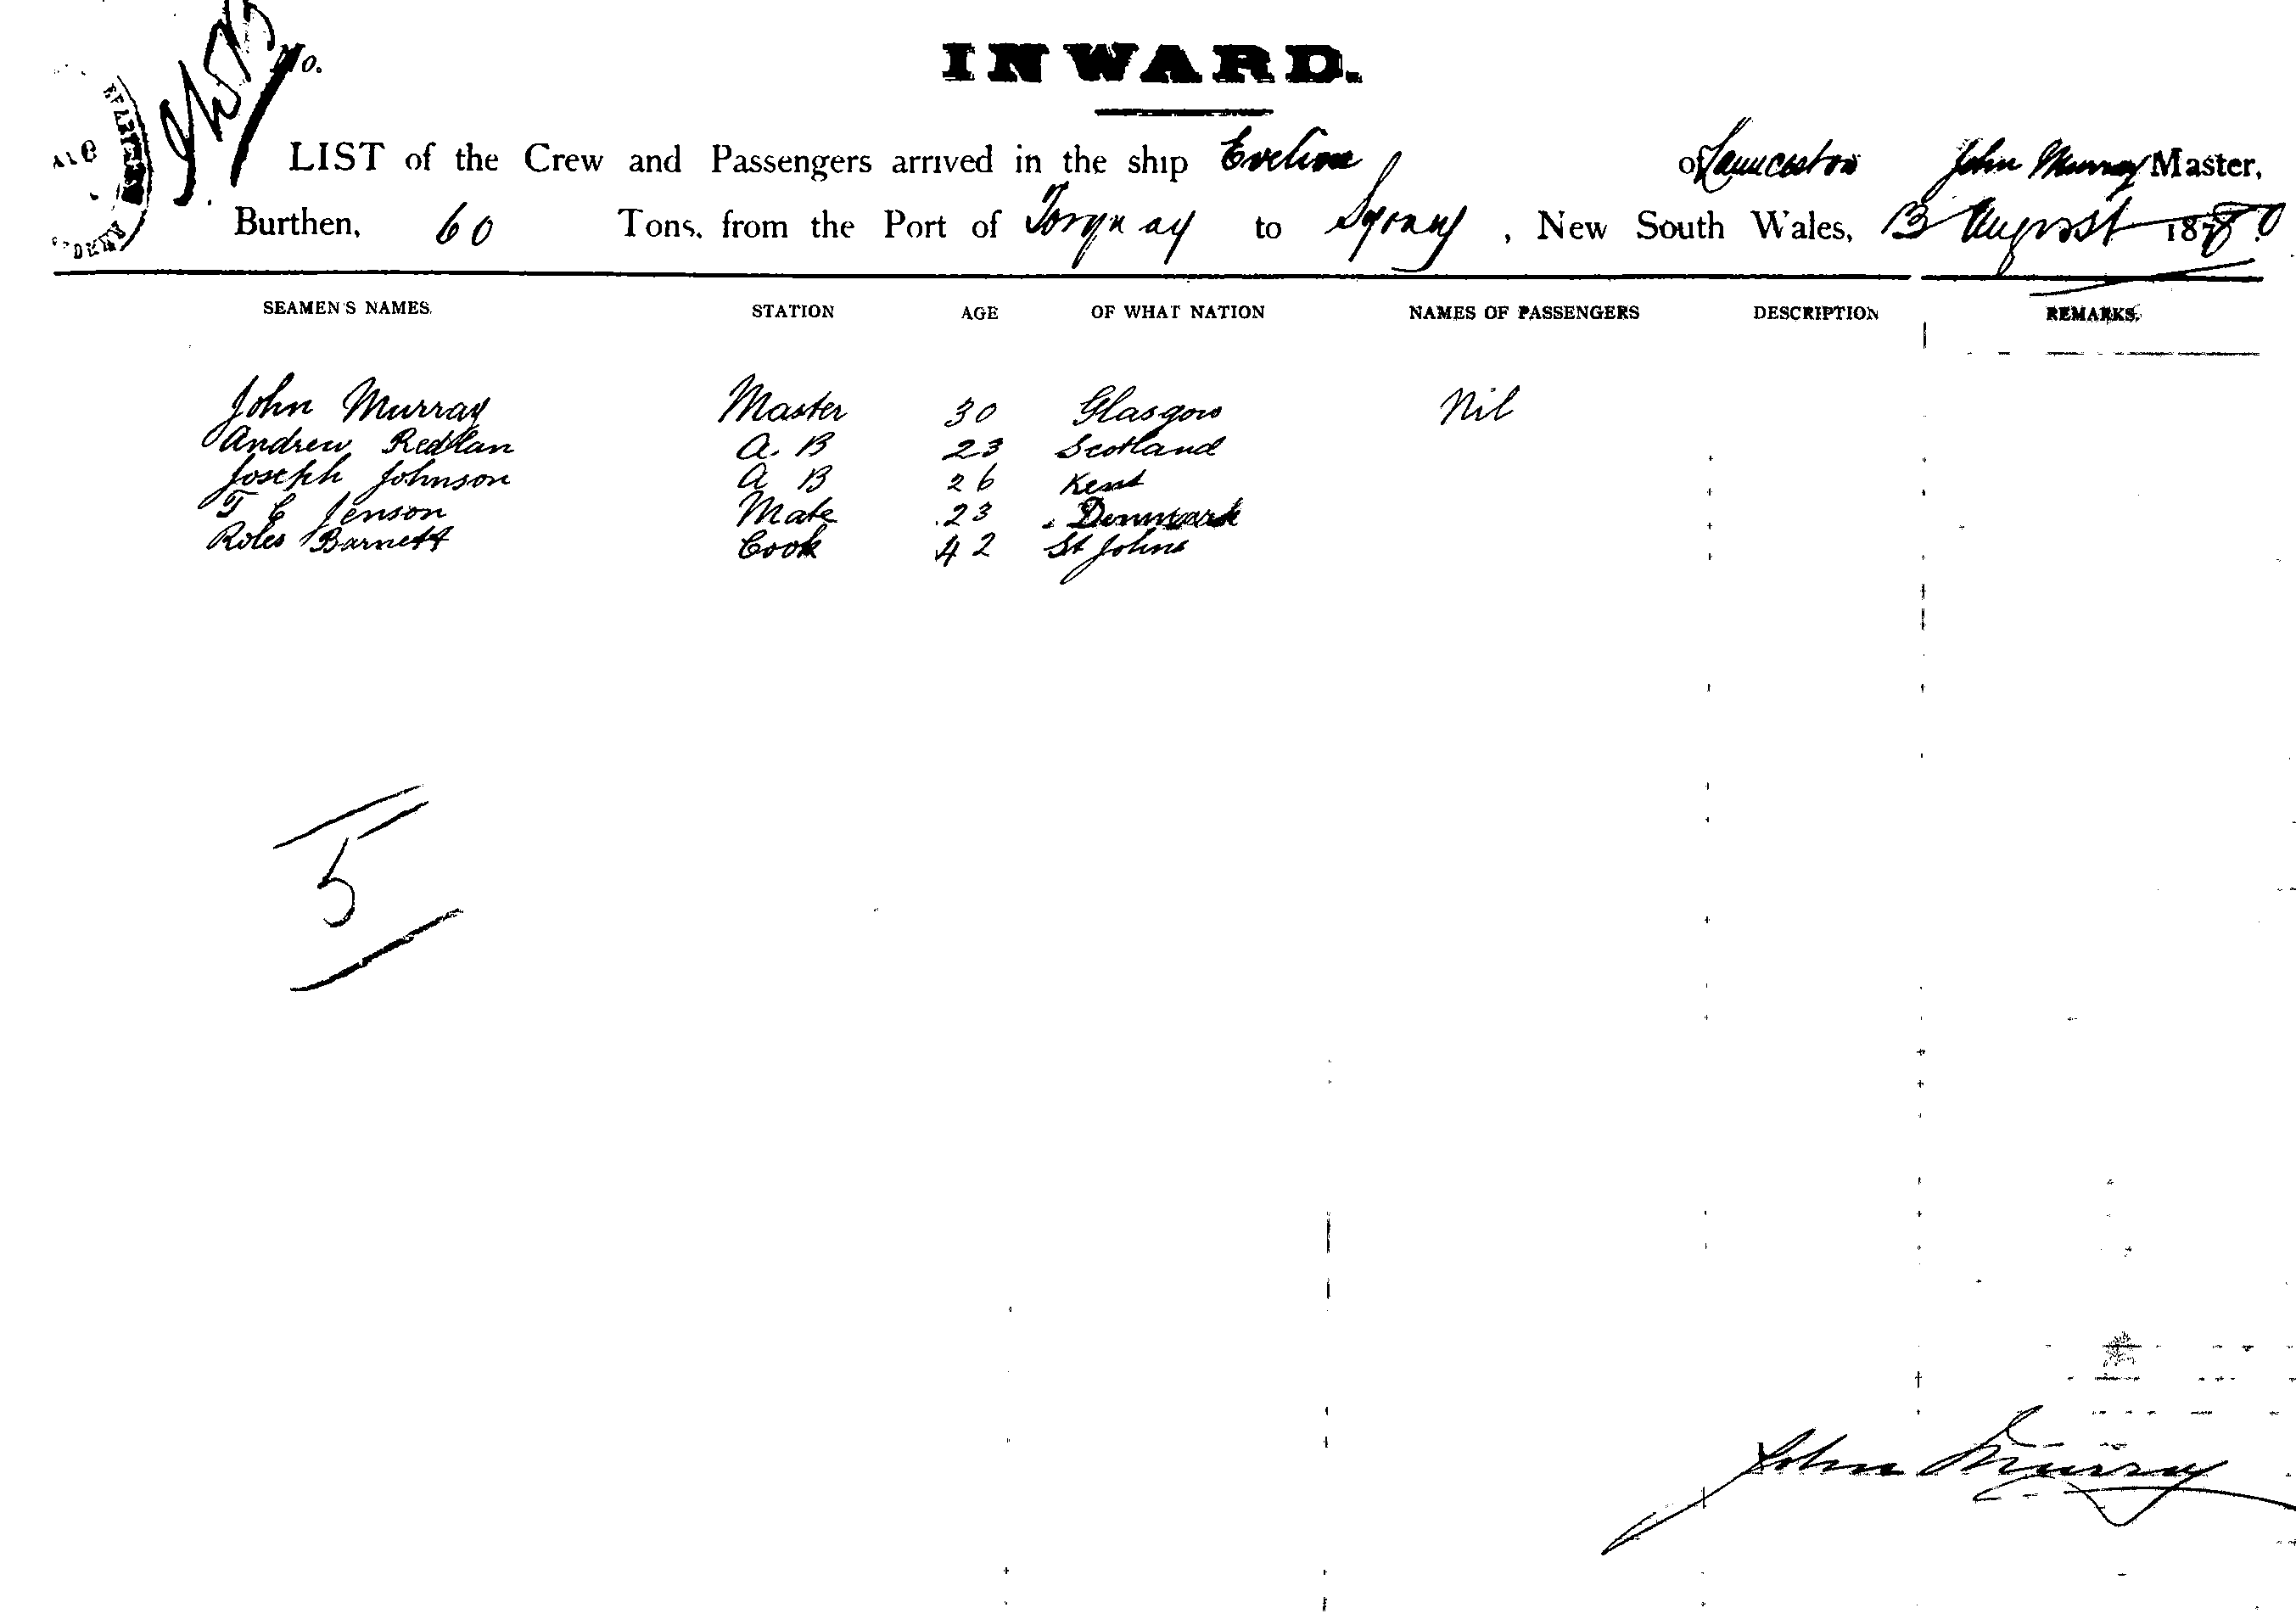 No.
INWARD.
LIST of the Crew and Passengers arrived in the ship Eveline of Launceston John Murray Master,
Burthen, 60 Tons, from the Port of Torquay to Sydney, New South Wales, 13 August 1880
SEAMEN'S NAMES. STATION AGE OF WHAT NATION NAMES OF PASSENGERS DESCRIPTION REMARKS.
John Murray Master 30 Glasgow Nil
Andrew Redllan A. B 23 Scotland
Joseph Johnson A B 26 Kent
T E Jenson Mate 23 Denmark
Barnett Cook 42 St Johns
5
John Murray